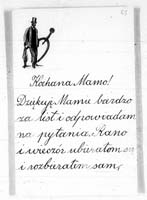 Kochana Mamo!
Dziękuję Mamu bardzo
za list i odpowiadam
na pytania. Rano
i wieczór ubarałam się
i rozbarałam sam,